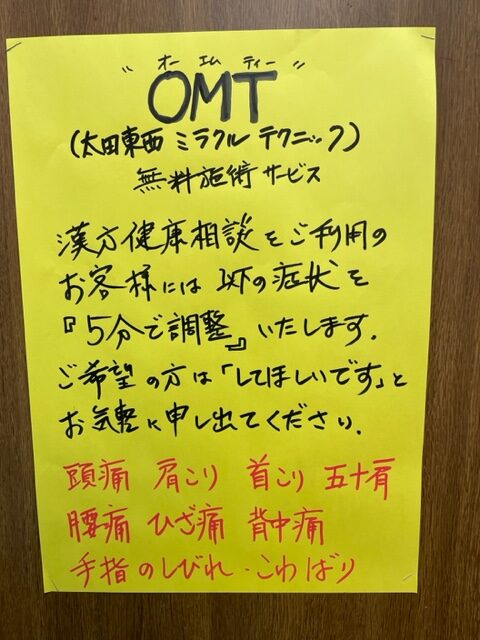 オー エム ティー
"OMT"
(太田東西 ミラクル テクニック)
無料施術サービス
漢方健康相談をご利用の
お客様には 以下の症状を
『5分で調整』いたします.
ご希望の方は「してほしいです」と
お気軽に申し出てください.
頭痛 肩こり 首こり 五十肩
腰痛 ひざ痛 背中痛
手指のしびれ・こわばり